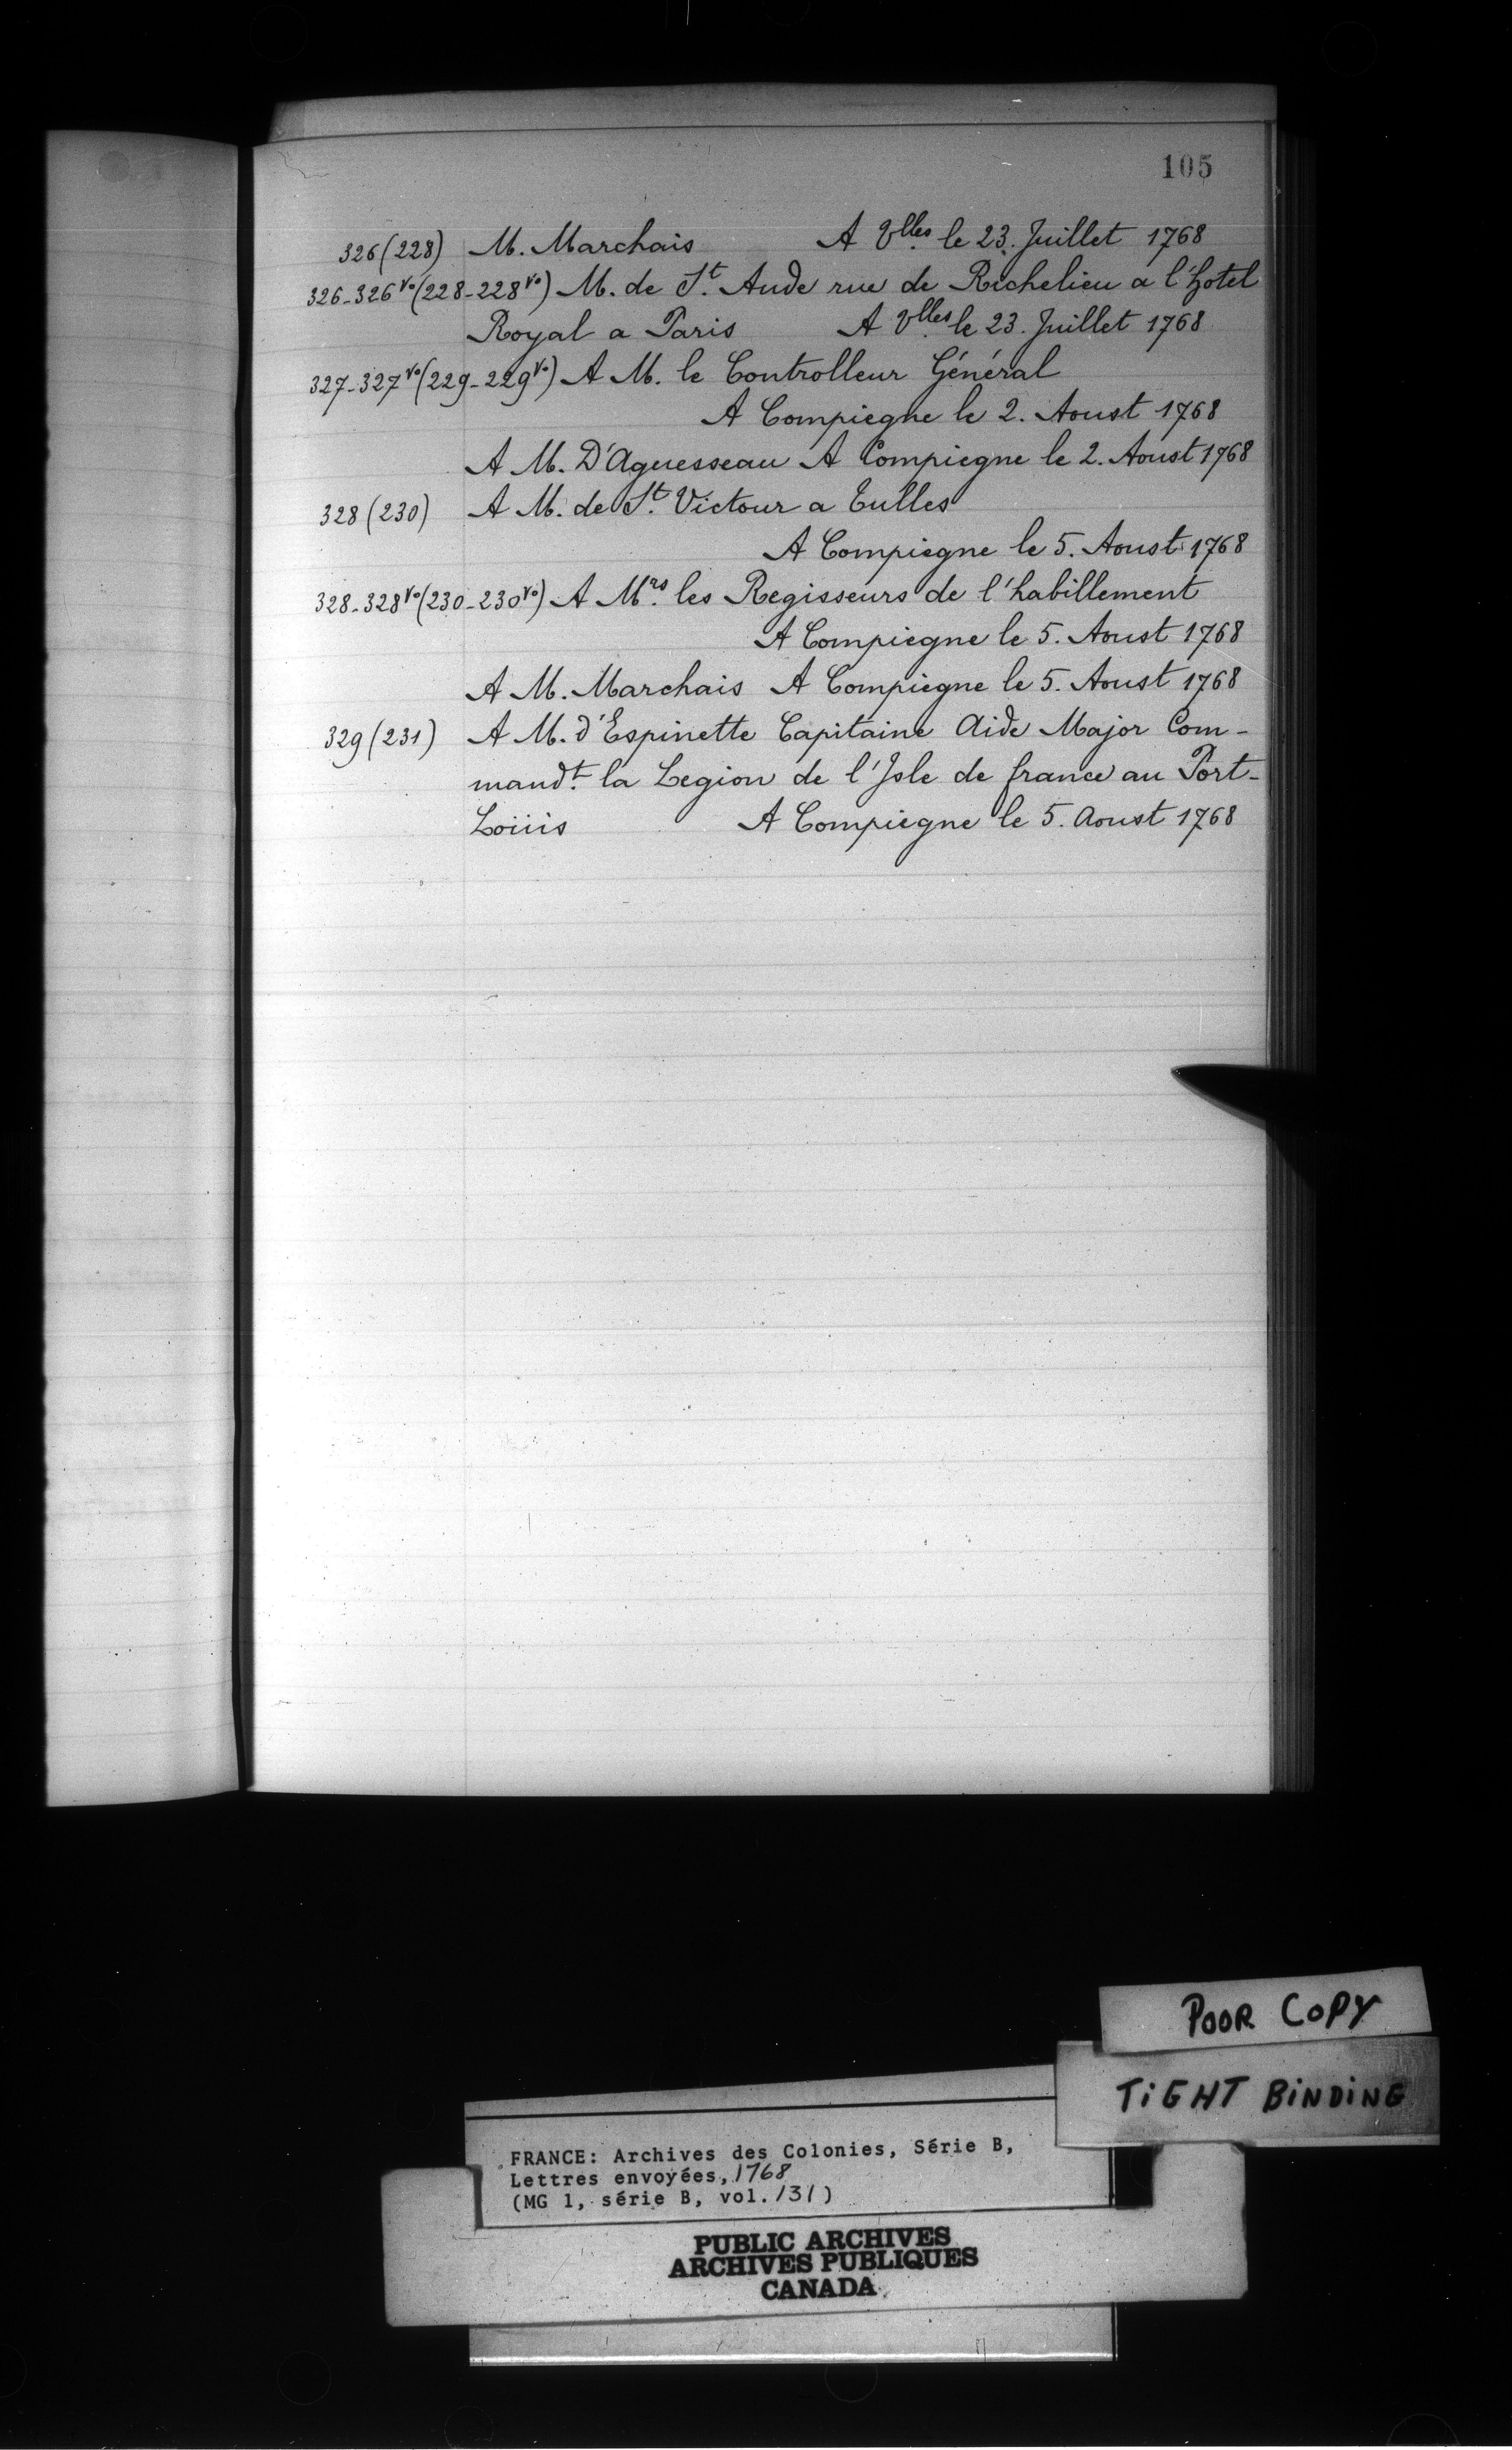 105
326(228) M. Marchais A Vlles. le 23. Juillet 1768
326-326vo(228-228vo) M. de St. Aude rue de Richelieu a l'hotel
Royal a Paris A Vlles. le 23. Juillet 1768
327-327vo(229-229vo) A M. le Controlleur Général
A Compiegne le 2. Aoust 1768
A M. D'Aguesseau A Compiegne le 2. Aoust 1768
328(230) A M. de St. Victour a Tulles
A Compiegne le 5. Aoust 1768
328-328vo(230-230vo) A Mrs. les Regisseurs de l'habillement
A Compiegne le 5. Aoust 1768
A M. Marchais A Compiegne le 5. Aoust 1768
329(231) A M. d'Espinette Capitaine Aide Major Com-
mandt. la Legion de l'Isle de france au Port-
Loüis A Compiegne le 5. Aoust 1768
POOR COPY
TiGHT BiNDiNG
FRANCE: Archives des Colonies, Série B,
Lettres envoyées, 1768
(MG 1, série B, vol. 131)
PUBLIC ARCHIVES
ARCHIVES PUBLIQUES
CANADA